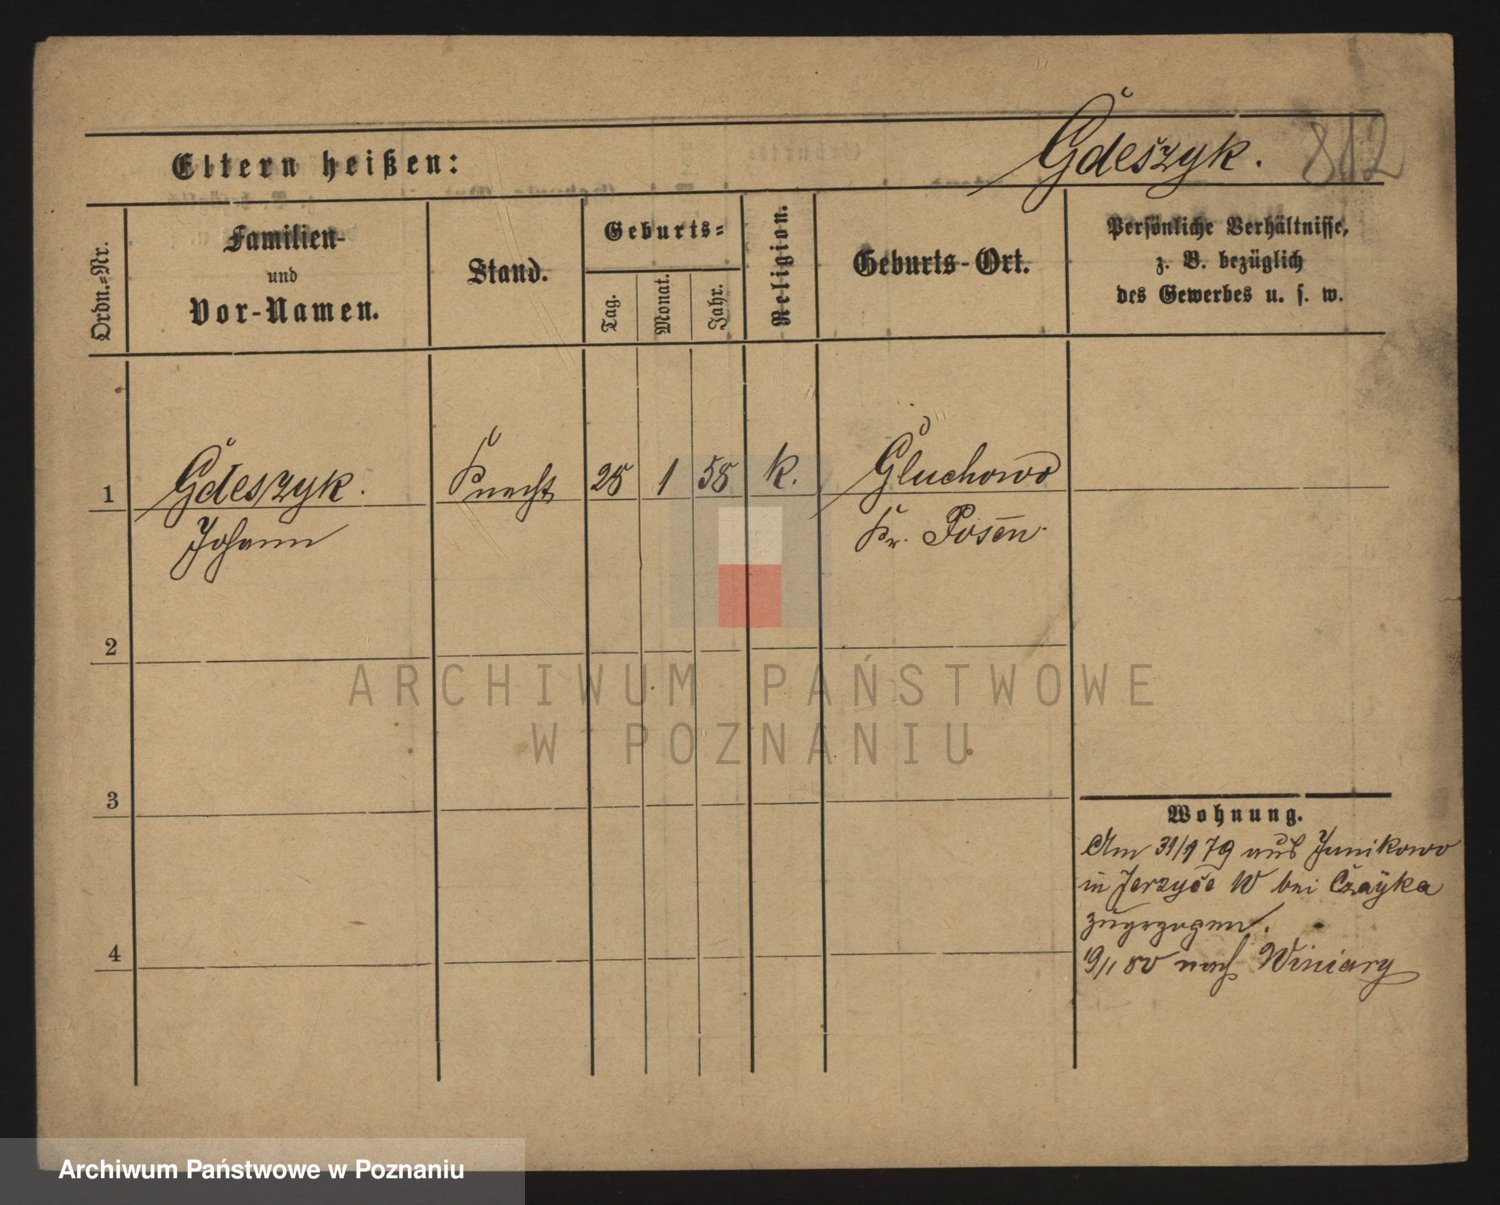 Gdeszyk. 812
Eltern heißen:
Ordn.=Nr.
Familien-
und
Vor-Namen.
Stand.
Geburts=
Tag.
Monat.
Jahr.
Religion.
Geburts-Ort.
Persönliche Verhältnisse,
z. B. bezüglich
des Gewerbes u. s. w.
1 Gdeszyk. Knecht 25 1 58 k. Gluchowo
Johann Kr. Posen.
2
3
4
Wohnung.
Am 31/1 79 aus Junikowo
in Jerzyce 10 bei Czayka
zugezogen.
19/1 80 nach Winiary
ARCHIWUM PAŃSTWOWE
W POZNANIU
Archiwum Państwowe w Poznaniu